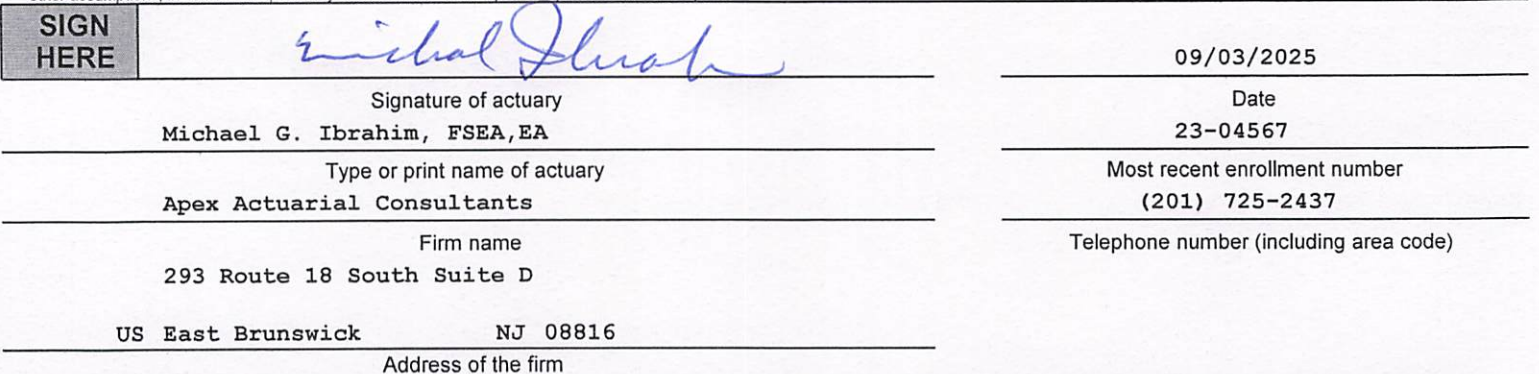 SIGN
HERE
Michael Ibrah
09/03/2025
Signature of actuary
Date
Michael G. Ibrahim, FSEA,EA
23-04567
Type or print name of actuary
Most recent enrollment number
Apex Actuarial Consultants
(201) 725-2437
Firm name
Telephone number (including area code)
293 Route 18 South Suite D
US East Brunswick NJ 08816
Address of the firm